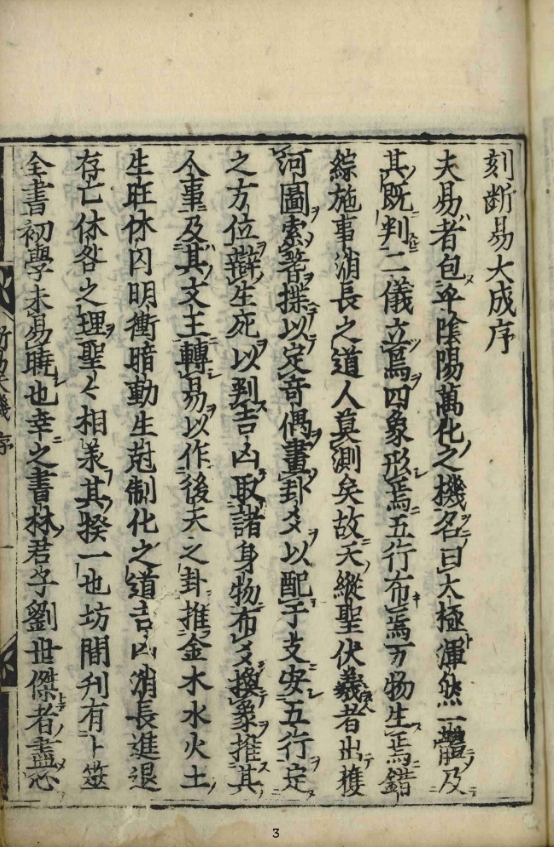 刻断易大成序
夫易者包乎陰陽萬化之機名曰太極渾然一體及
其既判二儀立焉四象形焉五行布焉万物生焉錯
綜施事消長之道人莫測矣故天縱聖伏羲者出㨿
河圖索蓍揲以定奇偶畫卦爻以配于支安五行定
之方位辯生死以判吉凶取諸身物布爻換象推其
人事及其文王轉易以作後天之卦推金木水火土
生旺休囚明衝暗動生尅制化之道吉凶消長進退
存亡休咎之理聖〻相羕其揆一也坊間刋有卜筮
全書初學未易曉也幸之書林君子劉世傑者盡心
序
3